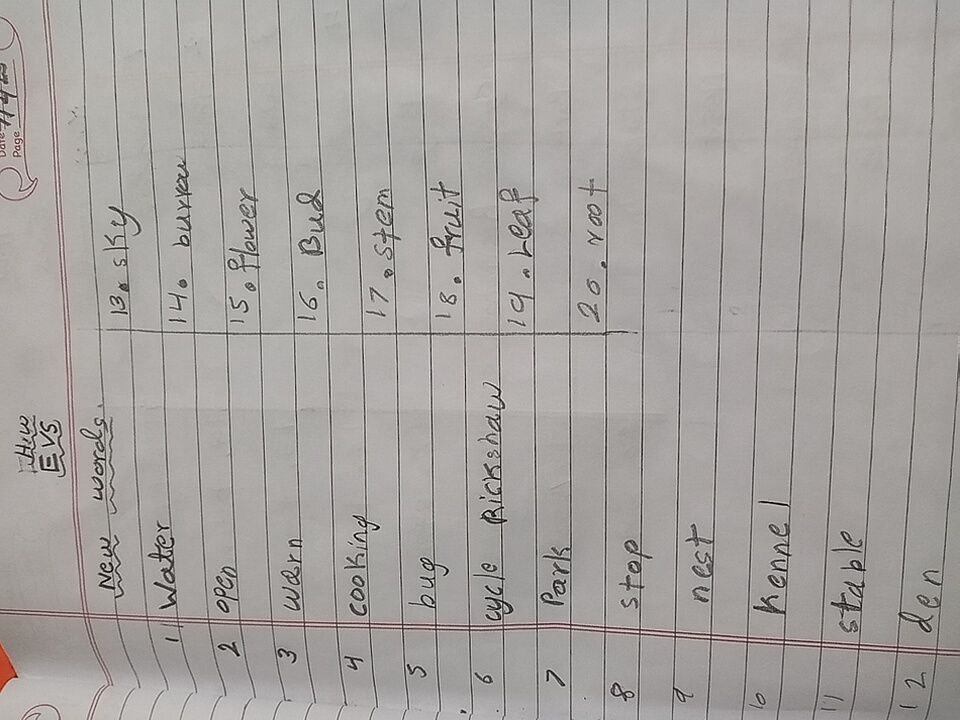 H.W
EVS
Date
Page
New words.
1 Watter
2 open
3 warn
4 cooking
5 bug
6 cycle Rickshaw
7 Park
8 stop
9 nest
10 Kennel
11 stable
12 den
13. sky
14. burrow
15. flower
16. Bud
17. stem
18. fruit
19. Leaf
20. root